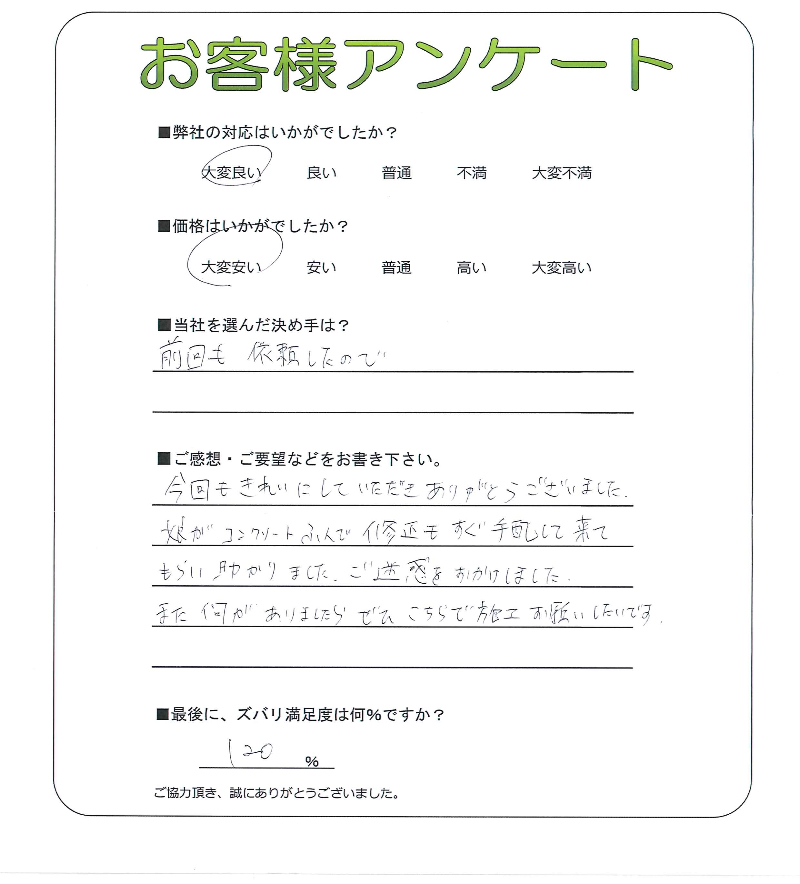 お客様アンケート
■弊社の対応はいかがでしたか？
大変良い 良い 普通 不満 大変不満
■価格はいかがでしたか？
大変安い 安い 普通 高い 大変高い
■当社を選んだ決め手は？
前回も 依頼したので
■ご感想・ご要望などをお書き下さい。
今回も きれいにして いただき ありがとうございました.
娘が コンクリート ふんで 修正も すぐ 手配して 来て
もらい 助かりました. ご迷惑を おかけしました.
また 何か ありましたら ぜひ こちらで 施工 お願いしたいです.
■最後に、ズバリ満足度は何%ですか？
120 %
ご協力頂き、誠にありがとうございました。